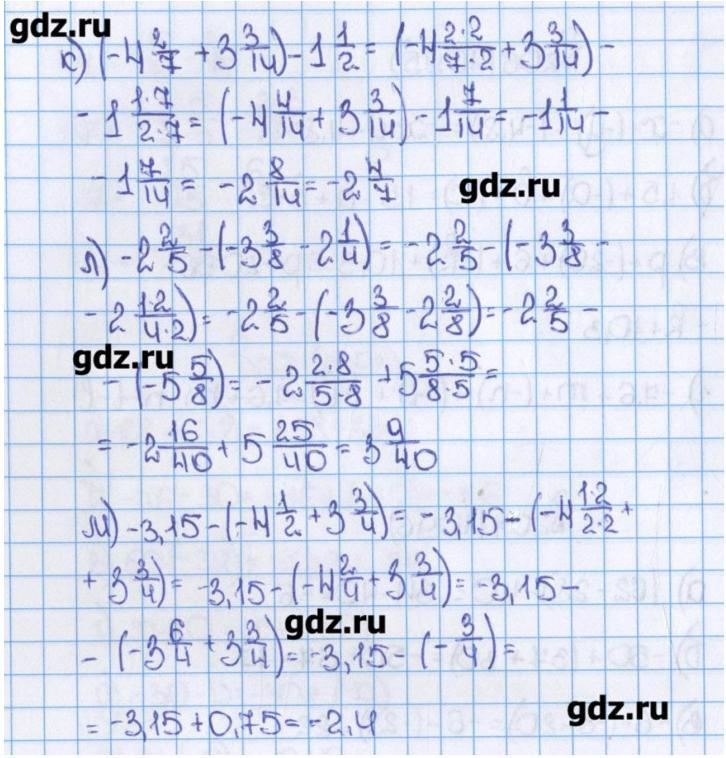 gdz.ru
к) (-4 2/7 + 3 3/14) - 1 1/2 = (-4 2·2/7·2 + 3 3/14) -
- 1 1·7/2·7 = (-4 4/14 + 3 3/14) - 1 7/14 = -1 1/14 -
- 1 7/14 = -2 8/14 = -2 4/7
gdz.ru
л) -2 2/5 - (-3 3/8 - 2 1/4) = -2 2/5 - (-3 3/8 -
- 2 1·2/4·2) = -2 2/5 - (-3 3/8 - 2 2/8) = -2 2/5 -
gdz.ru
- (-5 5/8) = -2 2·8/5·8 + 5 5·5/8·5 =
= -2 16/40 + 5 25/40 = 3 9/40
м) -3,15 - (-4 1/2 + 3 3/4) = -3,15 - (-4 1·2/2·2 +
+ 3 3/4) = -3,15 - (-4 2/4 + 3 3/4) = -3,15 -
gdz.ru
- (-3 6/4 + 3 3/4) = -3,15 - (-3/4) =
gdz.ru
= -3,15 + 0,75 = -2,4